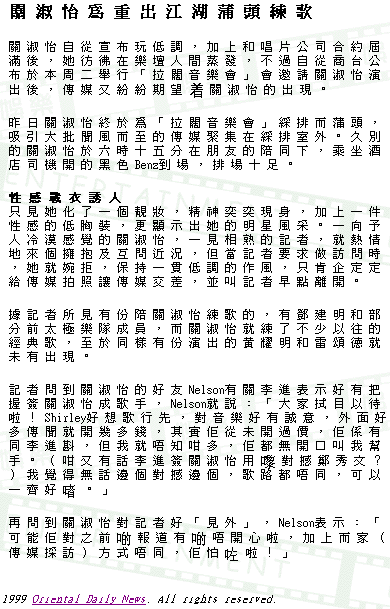 關淑怡為重出江湖蒲頭練歌
關淑怡自從宣布玩低調，加上和唱片公司合約屆
滿後，她彷彿在樂壇人間蒸發，不過自從商台公
布於本周二舉行「拉闊音樂會」會邀請關淑怡演
出後，傳媒又紛紛期望着關淑怡的出現。
昨日關淑怡終於為「拉闊音樂會」綵排而蒲頭，
吸引大批聞風而至的傳媒聚集在綵排室外。久別
的關淑怡於六時十五分在朋友的陪同下，乘坐酒
店司機開的黑色Benz到場，排場十足。
性感戰衣誘人
只見她化了一個靚妝，精神奕奕現身，加上一件
性感的低胸裝，更顯示出她的明星風采。一向予
人冷漠感覺的關淑怡，一見相熟的記者，就熱情
地來個擁抱及互問近況，但當記者要求做訪問時
，她就婉拒，保持一貫低調的作風，只肯企定定
給傳媒拍照讓傳媒交差，並叫記者早點離開。
據記者所見有份陪關淑怡練歌的，有鄭建明和部
分前太極樂隊成員，而關淑怡就練了不少以往的
經典歌，至於同樣有份演出的黃耀明和雷頌德就
未有出現。
記者問到關淑怡的好友Nelson有關李進表示好有把
握簽關淑怡成歌手，Nelson就說：「大家拭目以待
啦！Shirley好想歌行先，對音樂好有誠意，外面好
多傳聞就開幾多錢，其實佢從未開過價，佢係有
同李進斟，但我就唔知咁多，佢都無開口叫我幫
手。（咁又有話李進簽關淑怡用嚟對撼鄭秀文？
）我覺得無話邊個對撼邊個，歌路都唔同，可以
一齊好啫。」
再問到關淑怡對記者好「見外」，Nelson表示：「
可能佢對之前啲報道有啲唔開心啦，加上而家（
傳媒採訪）方式唔同，佢怕咗啦！」
1999 Oriental Daily News. All rights reserved.